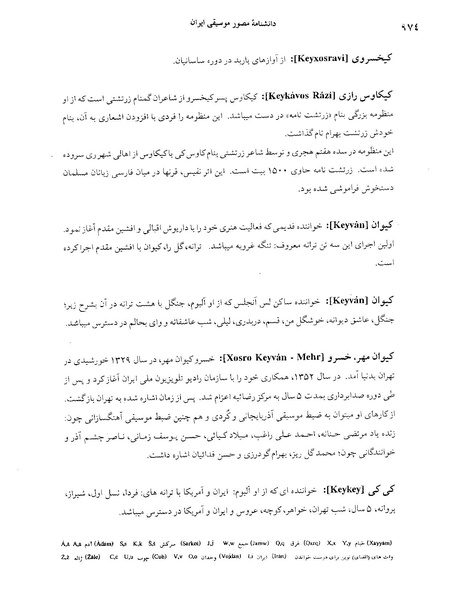 ۹۷٤
دانشنامهٔ مصور موسیقی ایران
کیخسروی [Keyxosravi]: از آوازهای باربد در دوره ساسانیان.
کیکاوس رازی [Keykávos Rázi]: کیکاوس پسر کیخسرو از شاعران گمنام زرتشتی است که از او
منظومه بزرگی بنام «زرتشت نامه» در دست میباشد. این منظومه را فردی با افزودن اشعاری به آن، بنام
خودش زرتشت بهرام نام گذاشت.
این منظومه در سده هفتم هجری و توسط شاعر زرتشتی بنام کاوس کی یا کیکاوس از اهالی شهر ری سروده
شده است. زرتشت نامه حاوی ۱۵۰۰ بیت است. این اثر نفیس، قرنها در میان فارسی زبانان مسلمان
دستخوش فراموشی شده بود.
کیوان [Keyván]: خواننده قدیمی که فعالیت هنری خود را با داریوش اقبالی و افشین مقدم آغاز نمود.
اولین اجرای این سه تن ترانه معروف: تنگه غروبه میباشد. ترانه، گل را، کیوان با افشین مقدم اجرا کرده
است.
کیوان [Keyván]: خواننده ساکن لس آنجلس که از او آلبوم، جنگل با هشت ترانه در آن بشرح زیر؛
جنگل، عاشق دیوانه، خوشگل من، قسم، دربدری، لیلی، شب عاشقانه و وای بحالم در دسترس میباشد.
کیوان مهر، خسرو [Xosro Keyván - Mehr]: خسرو کیوان مهر، در سال ۱۳۲۹ خورشیدی در
تهران بدنیا آمد. در سال ۱۳۵۲، همکاری خود را با سازمان رادیو تلویزیون ملی ایران آغاز کرد و پس از
طی دوره صدابرداری بمدت ۵ سال به مرکز رضائیه اعزام شد. پس از زمان اشاره شده به تهران بازگشت.
از کارهای او میتوان به ضبط موسیقی آذربایجانی و کُردی و هم چنین ضبط موسیقی آهنگسازانی چون:
زنده یاد مرتضی حنانه، احمد علی راغب، میلاد کیائی، حسن یوسف زمانی، ناصر چشم آذر و
خوانندگانی چون؛ محمد گل ریز، بهرام گودرزی و حسن فدائیان اشاره داشت.
کی کی [Keykey]: خواننده ای که از او آلبوم: ایران و آمریکا با ترانه های: فردا، نسل اول، شیراز،
پروانه، ۵ سال، شب تهران، خواهر، کوچه، عروس و ایران و آمریکا در دسترس میباشد.